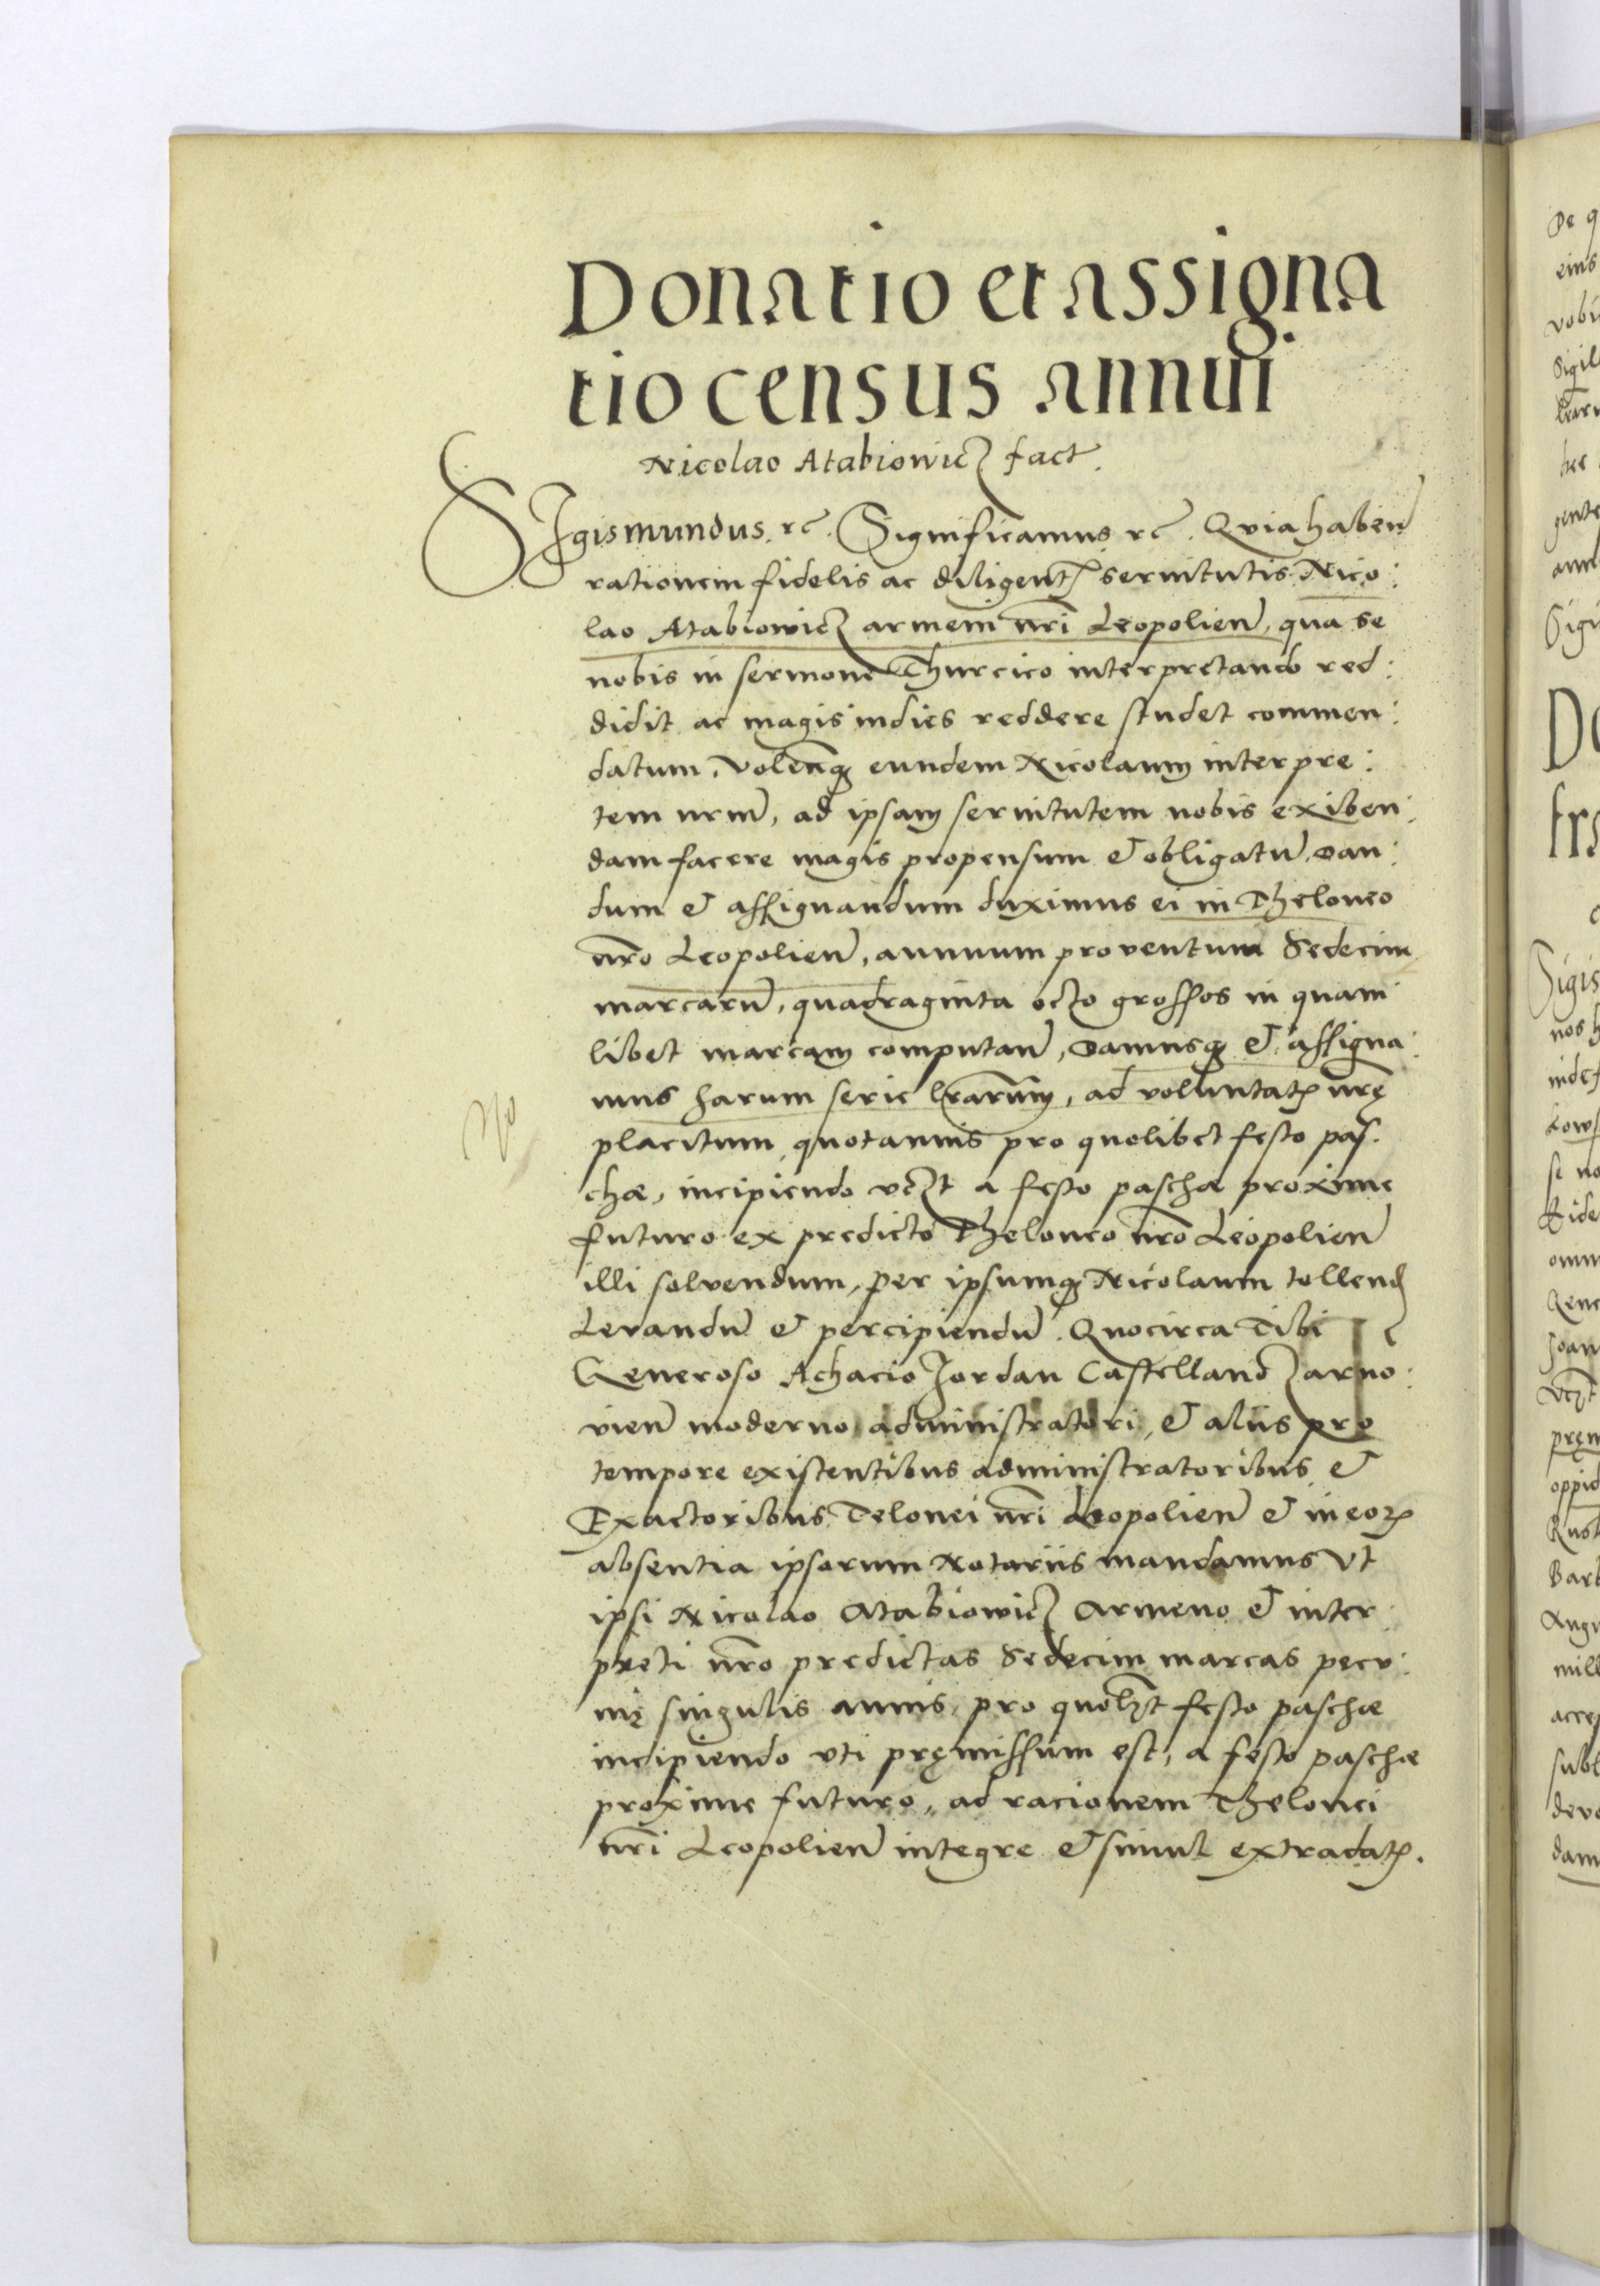 Donatio et assigna
tio census annui
Nicolao Atabiowicz fact.
SIgismundus. rc. Significamus rc. Qvia haben
rationem fidelis ac diligent servitutis Nico:
lao Atabiowicz armeni nri Leopolien, qua se
nobis in sermone Thurcico interpretando red:
didit ac magis indies reddere studet commen:
datum. volenq eundem Nicolaum interpre:
tem nrm, ad ipsam servitutem nobis exiben:
dam facere magis propensum & obligatu, dan:
dum & assignandum duximus ei in Theloneo
nro Leopolien, annuum proventum Sedecim
marcaru, quadraginta octo grossos in quam
libet marcam computan, damusq & assigna:
mus harum serie lrarum, ad voluntat nrę
placitum quotannis pro quolibet festo pas.
chæ, incipiendo vczt a festo paschæ proxime
futuro ex predicto Theloneo nro Leopolien
illi solvendum, per ipsumq Nicolaum tollend
Levandu & percipiendu. Quocirca Tibi
Generoso Achacio Jordan Castellano Zarno:
vien moderno administratori, & aliis pro
tempore existentibus administratoribus &
Exactoribus Telonei nri Leopolien & in eor
absentia ipsorum Notariis mandamus Vt
ipsi Nicolao Atabiowicz Armeno & inter
preti nro predictas Sedecim marcas pecu:
nię singulis annis, pro quolzt festo paschæ
incipiendo vti pręmissum est, a festo paschæ
proxime futuro, ad racionem Thelonei
nri Leopolien integre & simul extradat.